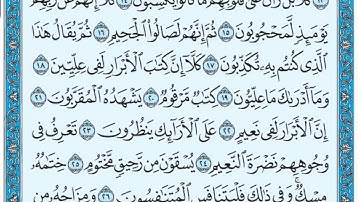 كَلَّا بَلْ رَانَ عَلَىٰ قُلُوبِهِم مَّا كَانُوا يَكْسِبُونَ ١٤ كَلَّا إِنَّهُمْ عَن رَّبِّهِمْ
يَوْمَئِذٍ لَّمَحْجُوبُونَ ١٥ ثُمَّ إِنَّهُمْ لَصَالُوا الْجَحِيمِ ١٦ ثُمَّ يُقَالُ هَٰذَا
الَّذِي كُنتُم بِهِ تُكَذِّبُونَ ١٧ كَلَّا إِنَّ كِتَٰبَ الْأَبْرَارِ لَفِي عِلِّيِّينَ ١٨
وَمَا أَدْرَىٰكَ مَا عِلِّيُّونَ ١٩ كِتَٰبٌ مَّرْقُومٌ ٢٠ يَشْهَدُهُ الْمُقَرَّبُونَ ٢١
إِنَّ الْأَبْرَارَ لَفِي نَعِيمٍ ٢٢ عَلَى الْأَرَآئِكِ يَنظُرُونَ ٢٣ تَعْرِفُ فِي
وُجُوهِهِمْ نَضْرَةَ النَّعِيمِ ٢٤ يُسْقَوْنَ مِن رَّحِيقٍ مَّخْتُومٍ ٢٥ خِتَٰمُهُ
مِسْكٌ وَفِي ذَٰلِكَ فَلْيَتَنَافَسِ الْمُتَنَٰفِسُونَ ٢٦ وَمِزَاجُهُ مِن